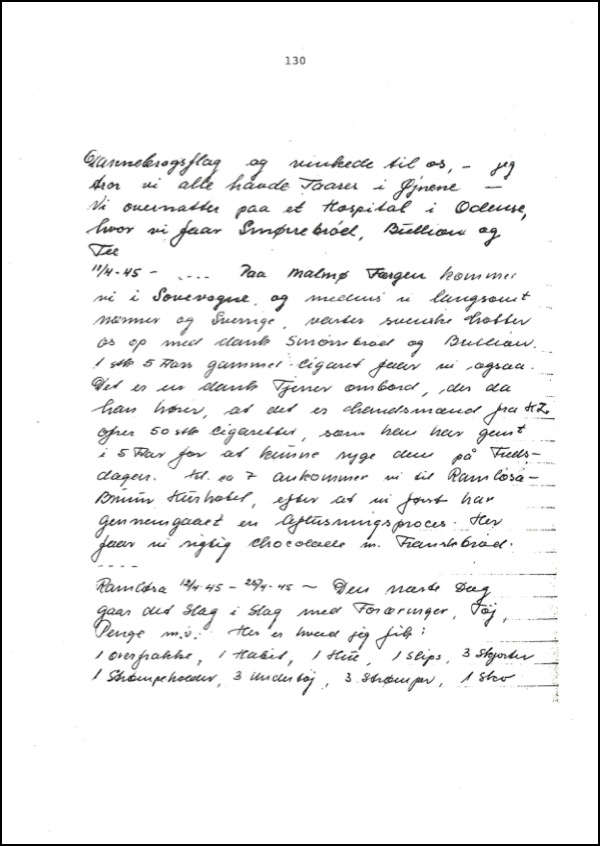 130
Dannebrogsflag og vinkede til os, – jeg
tror vi alle havde Taarer i Øjnene —
Vi overnatter paa et Hospital i Odense,
hvor vi faar Smørrebrød, Bullion og
Tee
11/4-45 – .... Paa Malmø Færgen kommer
vi i Sovevogne, og medens vi langsomt
nærmer og Sverige, varter svenske Lotter
os op med dansk Smørrebrød og Bullion.
1 stk 5 Aars gammel Cigaret faar vi ogsaa.
Det er en dansk Tjener ombord, der da
han hører, at det er Landsmænd fra KZ.
ofrer 50 stk Cigaretter, som han har gemt
i 5 Aar for at kunne ryge dem på Freds-
dagen. Kl. ca 7 ankommer vi til Ramlösa-
Brunn Kurhotel, efter at vi først har
gennemgaaet en Aflusningsproces. Her
faar vi rigtig Chocolade m. Franskbrød.
- - - -
Ramlösa 12/4-45 – 20/4-45 ~ Den næste Dag
gaar det Slag i Slag med Foræringer, Tøj,
Penge m.v. Her er hvad jeg fik:
1 Overfrakke, 1 Habit, 1 Hue, 1 Slips, 3 Skjorter
1 Strømpeholder, 3 Undertøj, 3 Strømper, 1 Sko